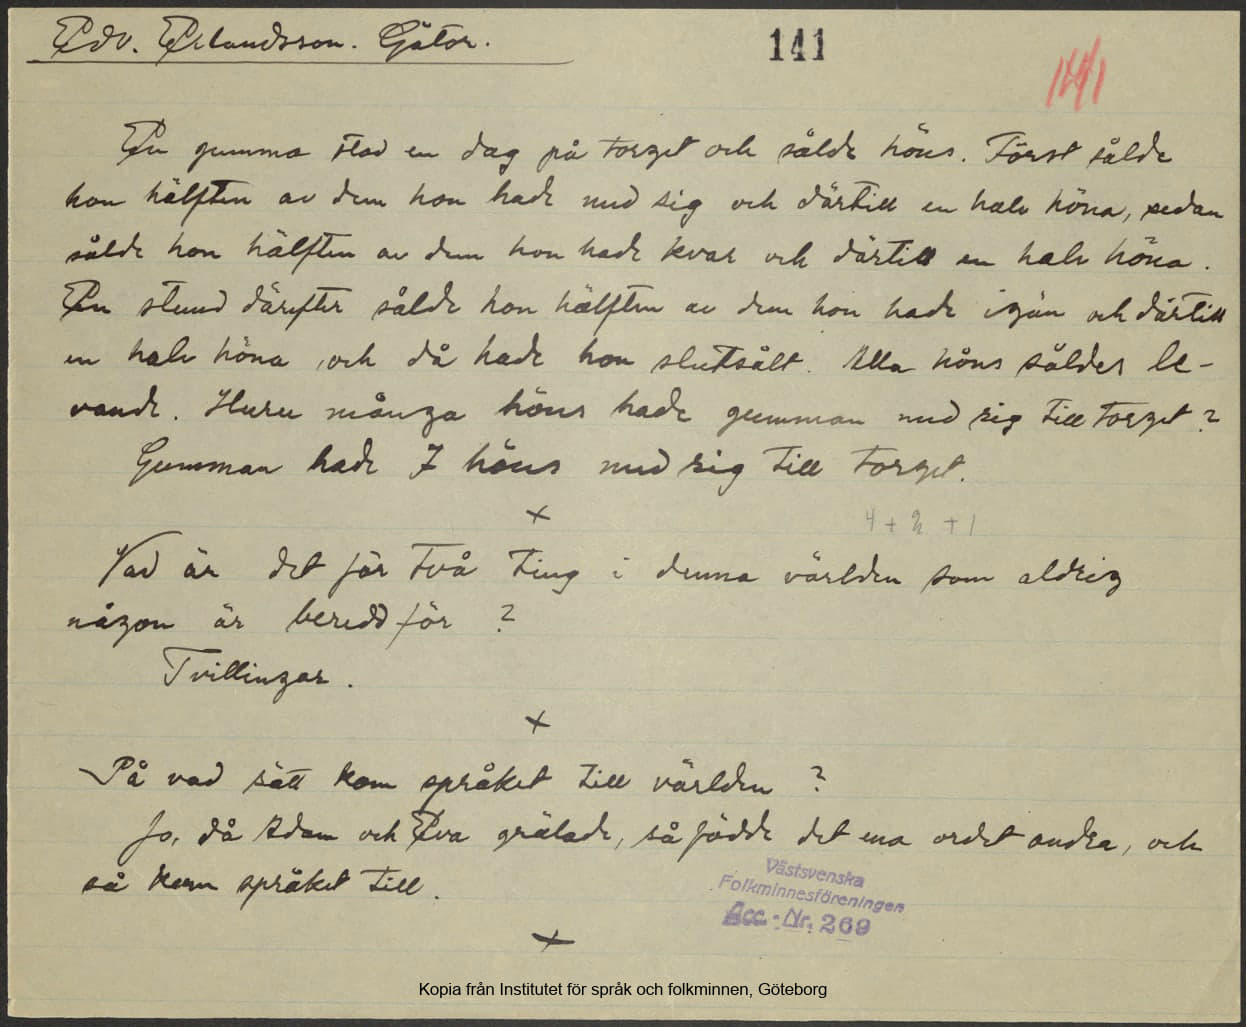 Edv. Erlandsson. Gåtor.
141
141
En gumma stod en dag på torget och sålde höns. Först sålde
hon hälften av dem hon hade med sig och därtill en halv höna, sedan
sålde hon hälften av dem hon hade kvar och därtill en halv höna.
En stund därefter sålde hon hälften av dem hon hade igän och därtill
en halv höna, och då hade hon slutsålt. Alla höns såldes le-
vande. Huru många höns hade gumman med sig till torget?
Gumman hade 7 höns med sig till torget.
x
4 + 2 + 1
Vad är det för två ting i denna världen som aldrig
någon är beredd för?
Tvillingar.
x
På vad sätt kom språket till världen?
Jo, då Adam och Eva grälade, så födde det ena ordet andra, och
så kom språket till.
Västsvenska
Folkminnesföreningen
Acc.-Nr. 269
x
Kopia från Institutet för språk och folkminnen, Göteborg